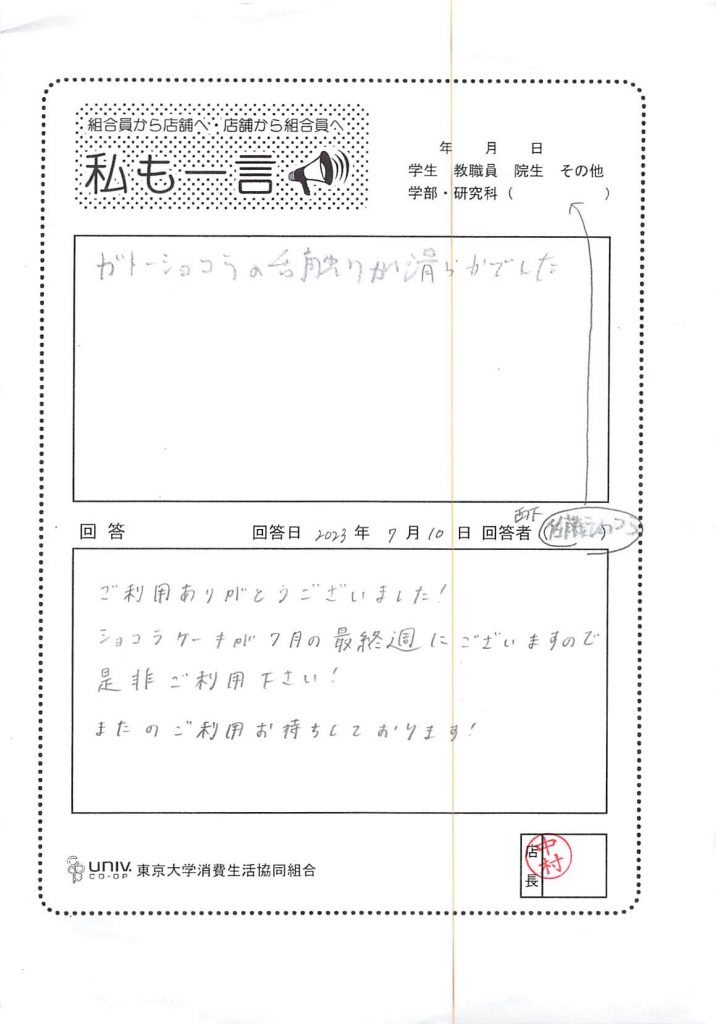 組合員から店舗へ・店舗から組合員へ
私も一言
年 月 日
学生 教職員 院生 その他
学部・研究科（ ）
ガトーショコラの舌触りが滑らかでした
回答 回答日 2023年 7月10日 回答者
ご利用ありがとうございました！
ショコラケーキが7月の最終週にございますので
是非ご利用下さい！
またのご利用お待ちしております！
UNIV. CO-OP 東京大学消費生活協同組合
店長 中村